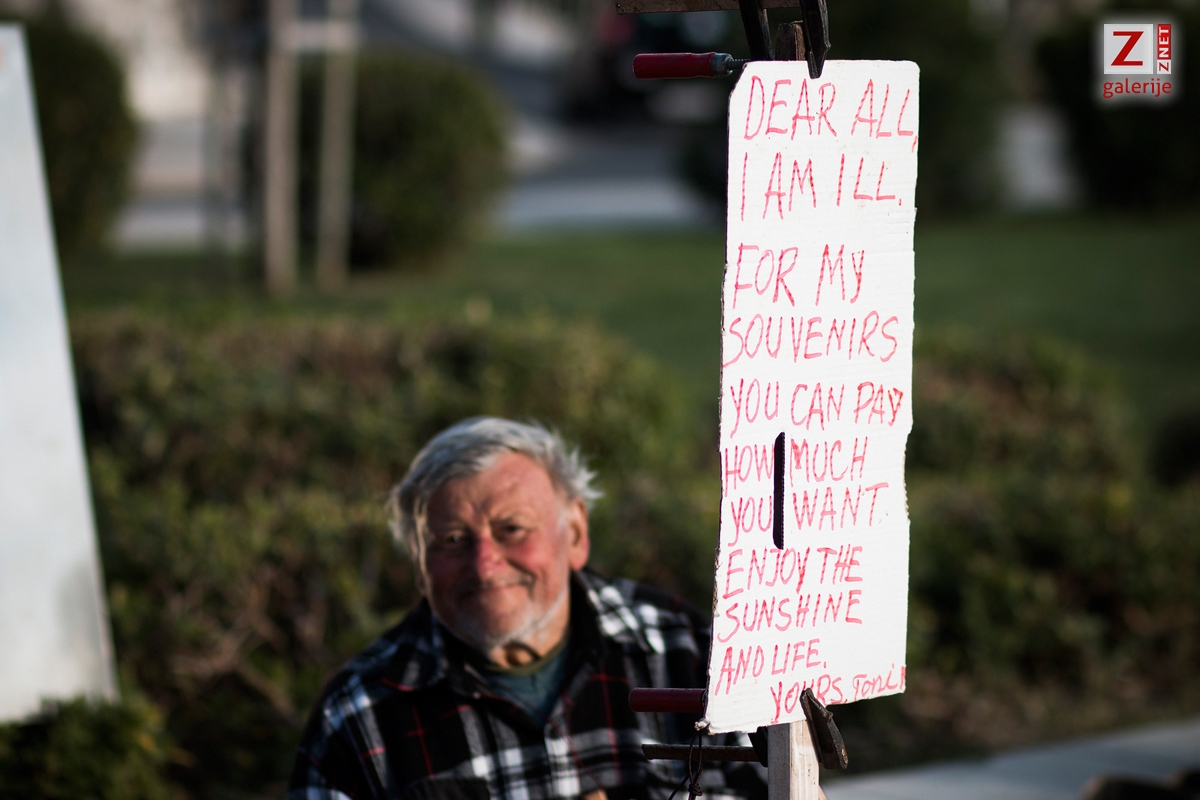 DEAR ALL,
I AM ILL.
FOR MY
SOUVENIRS
YOU CAN PAY
HOW MUCH
YOU WANT.
ENJOY THE
SUNSHINE
AND LIFE.
YOURS, TONI
Z ZNET
galerije